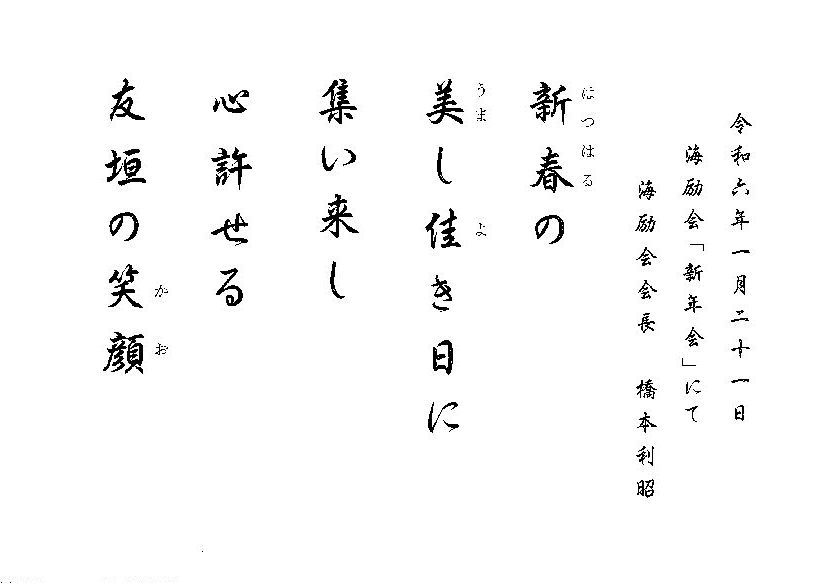 令和六年一月二十一日
海励会「新年会」にて
海励会会長　橋本利昭
はつはる
新春の
うま　よ
美し佳き日に
集い来し
心許せる
かお
友垣の笑顔